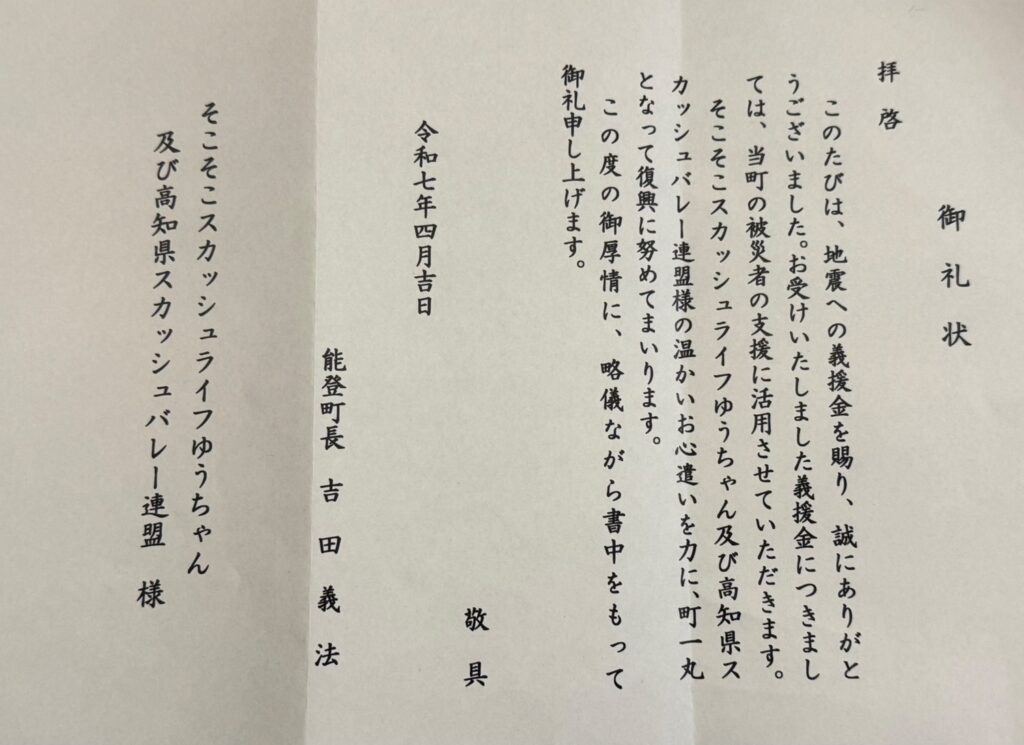 御礼状
拝啓
このたびは、地震への義援金を賜り、誠にありがと
うございました。お受けいたしました義援金につきまし
ては、当町の被災者の支援に活用させていただきます。
そこそこスカッシュライフゆうちゃん及び高知県ス
カッシュバレー連盟様の温かいお心遣いを力に、町一丸
となって復興に努めてまいります。
この度の御厚情に、略儀ながら書中をもって
御礼申し上げます。
敬具
令和七年四月吉日
能登町長 吉田義法
そこそこスカッシュライフゆうちゃん
及び高知県スカッシュバレー連盟 様